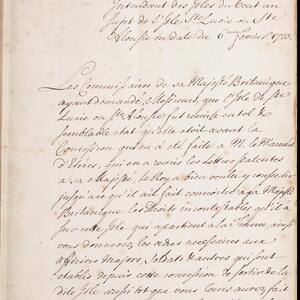 Intendant des Isles du Vent au
Sujet de l'Isle Ste Lucie ou Ste
Alousie en date du 6me fevrier 1723.
Les Commissaires de sa Majesté Britanique
ayant demandé, Messieurs, que l'Isle de Ste
Lucie ou Ste Alousie fut remise en tel &
semblable etat qu'elle etoit avant la
Concession qui en a eté faite a M. le Marechal
d'Etrées, qui en a remis les Lettres patentes
a sa Majesté, le Roy a bien voulu y consentir
jusqu'a ce qu'il ait fait connoitre a sa Majesté
Britanique les Droits incontestables qu'il a
sur cette Isle qui apartient a la France ainsi
vous donnerez les ordres necessaires aux
Officiers Majors, Soldats & autres qui sont
etablis depuis cette concession de sortir de la
dite Isle aussi tot que vous